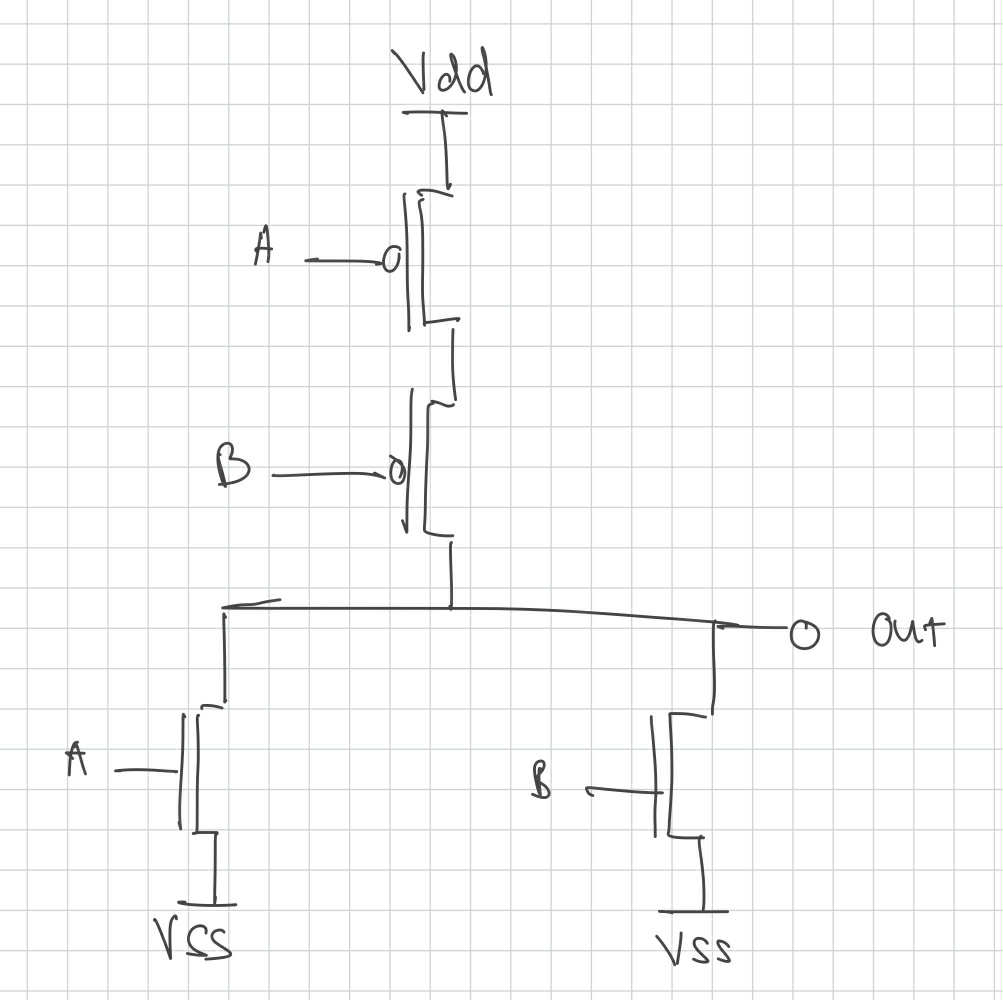 Vdd
A
B
Out
A
B
VSS
VSS